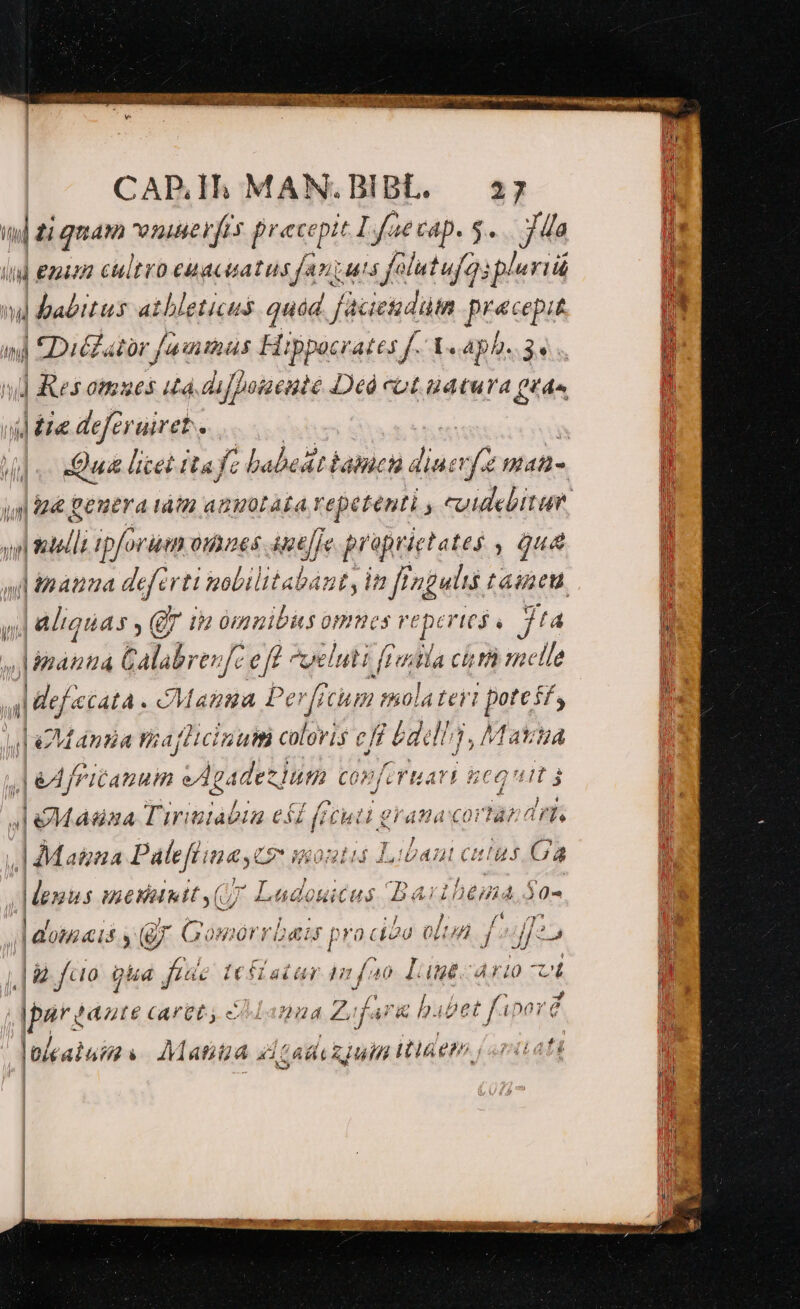 CAP. II. MAN. BIBL. 27
ti quam vniuersis præcepit I. suę cap. 5. Illa
enim cultro euacuatus sanguis solutusq; pluriũ
habitus athleticus quod faciendum præcepit
Dictator summus Hippocrates s. 1. aph. 3.
Res omnes ita disponente Deo vt natura gra-
tiæ deseruiret.
Quæ licet ita se habeãt tamen diuersæ man-
næ genera iàm annotata repetenti, videbitur
nulli ipsorum omnes inesse proprietates, quæ
manna deserti nobilitabant, in singulis tamen
aliquas, & in omnibus omnes reperies. Ita
manna Calabrense est veluti similia cum melle
defæcata. Manna Persicum mola teri potest,
Manna masticinum coloris est bdellij, Manna
Africanum Agadezium conseruari nequit;
Manna Tiriniabin est sicuti grana coriandri.
Manna Palestinæ, & montis Libani cuius Ga
lenus meminit, & Ludouicus Barthema So-
domæis, & Gomorrhæis pro cibo olim fuisse,
scio qua fide testatur in suo Itinerario vt
puritante caret, Manna Zifaræ habet saporẽ
oleatum. Manna Agadezium itidem